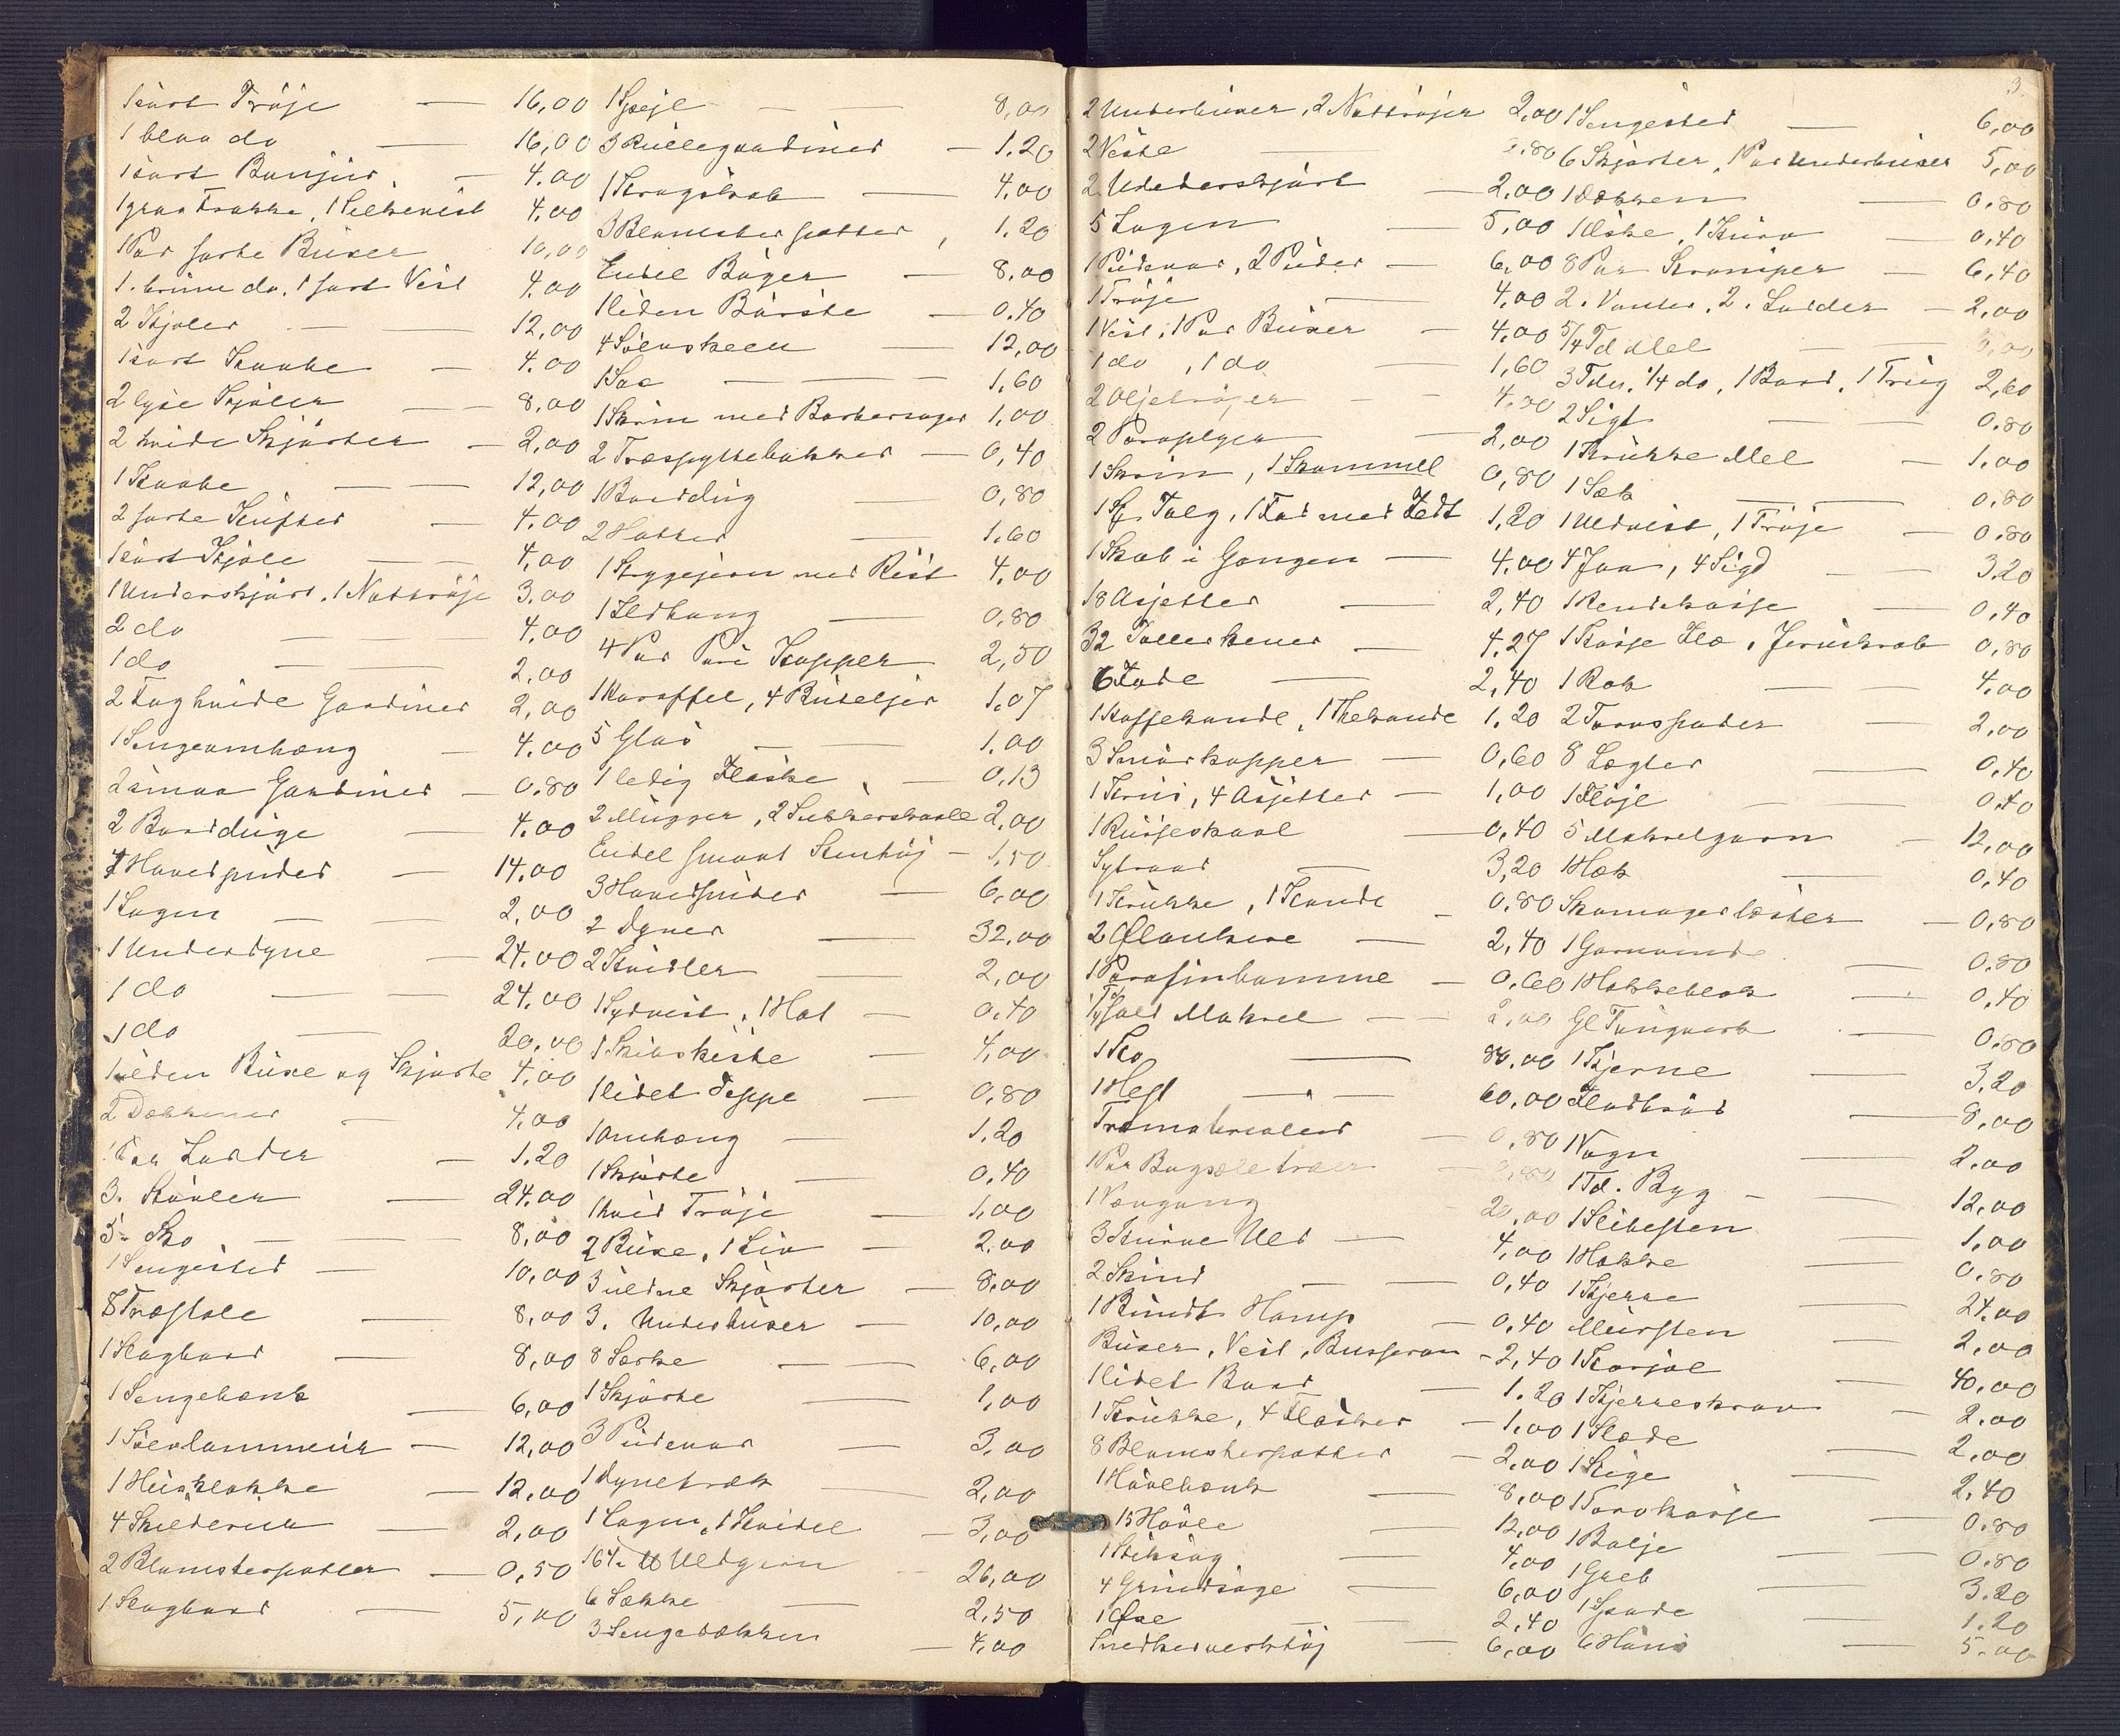 1 sort Trøje — 16,00
1 blaa do — 16,00
1 sort Bunjur — 4.00
1 graa Frakke, 1 Silkevest 4,00
1 Par sorte Buxer 10,00
1. brune do, 1 sort Vest 4,00
2 Kjoler — 12,00
1 sort Kaabe — 4.00
2 lyse Kjoler — 8,00
2 hvide Skjørter — 2,00
1 Kaabe — 12,00
2 sorte Skufter — 4.00
1 sort Kjole — 4,00
1 Underskjørt, 1 Nattrøje 3.00
2 do — 4,00
1 do — 2,00
2 Fag hvide Gardiner 2,00
1 Sengeomhæng — 4.00
2 smaa Gardiner — 0.80
2 Bordduge — 4.00
7 Hovedpuder — 14.00
1 Lagen — 2,00
1 Underdyne — 24.00
1 do — 24.00
1 do — 20,00
1 ulden Buxe og Skjorte 4,00
2 Dækkener — 4,00
1 Par Laader — 1.20
3. Støvler — 24.00
5 - Sko — 8,00
1 Sengested — 10,00
8 Træstole — 8,00
1 Slagbord — 8,00
1 Sengebænk — 6,00
1 Søvlommeur — 12,00
1 Husklokke — 12,00
4 Skilderier — 2,00
2 Blomsterpotter — 0,50
1 Slagbord — 5,00
1 Spejl — 8,00
3 Rullegardiner — 1.20
1 Kragskab — 4,00
3 Blomsterpotter, 1.20
Endel Bøger — 8,00
1 liden Børste — 0.40
4 Sølvskeer — 12,00
1 Sax — 1,60
1 Skrin med Barbersager 1,00
2 Træspyttebakker — 0,40
1 Borddug — 0,80
2 Hatter — 1.60
1 Strygejern med Rist 4,00
1 Ildtang — 0,80
4 Par Par Kopper — 2,50
1 Karaffel, 4 Buteljer 1.07
5 Glas — 1.00
1 ledig Flaske — 0.13
2 Mugger, 2 Sukkerskaale 2,00
Endel smaat Stentøj — 1,50
3 Hovedpuder — 6,00
2 Dyner — 32,00
2 Kvidler — 2,00
1 Sydvest, 1 Hat — 0.40
1 Skibskiste — 4,00
1 lidet Teppe — 0,80
1 Omhæng — 1.20
1 Skjorte — 0,40
1 hvid Trøje — 1,00
2 Buxe, 1 Liv — 2,00
3 uldne Skjørter — 8,00
3. Underbuxer — 10,00
8 Særke — 6,00
1 Skjorte — 1,00
3 Pudevar — 3,00
1 Dynetræk — 2,00
1 Lagen, 1 Kvidel — 3,00
16½ ℔ Uldgarn — 26,00
6 Sække — 2,50
3 Sengedækken — 4,00
3.
2 Underbuxer, 2 Nattrøjer 2,00
2 Veste — 0.80
2 Underskjørt — 2,00
5 Lagen — 5,00
1 Pudevar, 2 Puder — 6,00
1 Trøje — 4,00
1 Vest, 1 Par Buxer — 4,00
1 do, 1 do — 1,60
2 Oljetrøjer — 4,00
2 Paraplyer — 2,00
1 Skrin, 1 Skammel 0,80
Talg, 1 Fad med Fedt 1,20
1 Skab i Gangen — 4.00
18 Asjetter — 2,40
32 Tallerkener — 4,27
6 Fade — 2,40
1 Kaffekande, 1 Thekande 1.20
3 Smørkopper — 0,60
1 Krus, 4 Asjetter — 1,00
1 Russeskaal — 0.40
Sytraad — 3,20
1 Krukke, 1 Kande — 0.80
2 Ølankere — 2,40
1 Parafinkamme — 0,60
salt Makrel — 2,00
1 Ko — 80,00
1 Hest — 60,00
Træmaterialer — 0,80
1 Par Bagsæletræer — 0,80
1 Vævgang — 20,00
3 Kurve Uld — 4,00
2 Skind — 0,40
1 Bundt Hamp — 0,40
Buxer, Vest, Busseron - 2,40
1 lidet Bord — 1.20
1 Krukke, 4 Flasker — 1,00
8 Blomsterpotter — 2,00
1 Høvlebænk — 8,00
15 Høvle — 12,00
1 Stiksag — 4,00
4 Grindsage — 6,00
1 Øxe — 2,40
Snedkerverktøj — 6,00
1 Sengested — 6,00
6 Skjorter, 1 Par Underbuxer 5,00
1 Dækken — 0.80
1 Øske, 1 Kurv — 0,40
8 Par Strømper — 6,40
2. Vanter, 2. Laader — 2,00
5/4 Td Mel — 5,00
3 Tdr. ¼ do, 1 Bord, 1 Trug 2,60
2 Sigt — 0.80
1 Krukke Mel — 1.00
1 Sæk — 0,80
1 Uldvest, 1 Trøje — 0.80
4 Jaa, 4 Sigd — 3.20
1 Rendekasse — 0,40
1 Kasse Flø, Jernskrab 0,80
1 Rok — 4,00
2 Tornspader — 2,00
8 Lægter — 0,40
1 Fløjl — 0.40
5 Makrelgarn — 12,00
1 Hæk — 0,40
Skomagerlæster — 0,80
1 Garnvinde — 0.80
1 Hakkeblok — 0,40
Gl Tougverk — 0.80
1 Kjerne — 3,20
Fladbrød — 8,00
1 Vogn — 2.00
1 Td. Byg — 12,00
1 Slibesten — 1,00
1 Hakke — 0,80
1 Kjerre — 24.00
Mursten — 2,00
1 Karjol — 40,00
1 Kjerreskrov — 2,00
1 Slæde — 2,00
1 Stige — 2,40
1 Torvkasse — 0.80
1 Balje — 0.80
1 Greb — 3.20
1 Spade — 1.20
6 Høns — 5.00